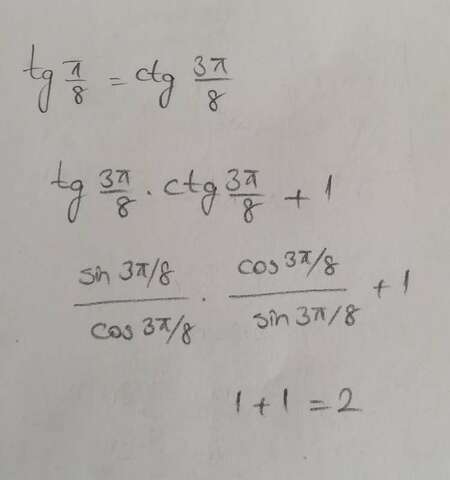 tg π/8 = ctg 3π/8
tg 3π/8 . ctg 3π/8 + 1
sin 3π/8 / cos 3π/8 . cos 3π/8 / sin 3π/8 + 1
1 + 1 = 2